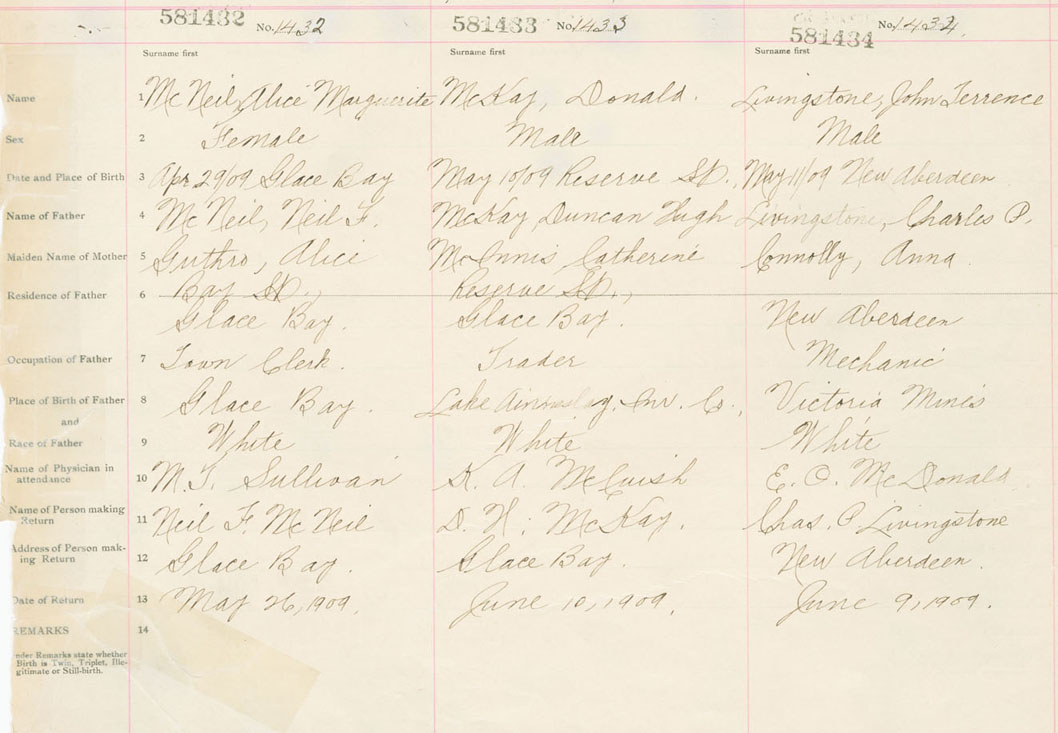 581432 No. 1432 581433 No. 1433 581434 No. 1434.
Surname first Surname first Surname first
Name 1 McNeil, Alice Marguerite McKay, Donald. Livingstone, John Terrence
Sex 2 Female Male Male
Date and Place of Birth 3 Apr 29/09 Glace Bay May 10/09 Reserve St., May 11/09 New Aberdeen
Name of Father 4 McNeil, Neil F. McKay, Duncan Hugh Livingstone, Charles P.
Maiden Name of Mother 5 Guthro, Alice McInnis Catherine Connolly, Anna
Residence of Father 6 Bay St., Reserve St.,
Glace Bay. Glace Bay. New Aberdeen
Occupation of Father 7 Town Clerk. Trader Mechanic
Place of Birth of Father 8 Glace Bay. Lake Inv. Co., Victoria Mines
and
Race of Father 9 White White White
Name of Physician in
attendance 10 M. T. Sullivan K. A. McCuish E. O. McDonald
Name of Person making
Return 11 Neil F. McNeil D. H. McKay. Chas. P. Livingstone
Address of Person mak-
ing Return 12 Glace Bay. Glace Bay. New Aberdeen.
Date of Return 13 May 26, 1909. June 10, 1909. June 9, 1909.
REMARKS 14
nder Remarks state whether
Birth is Twin, Triplet, Ille-
gitimate or Still-birth.